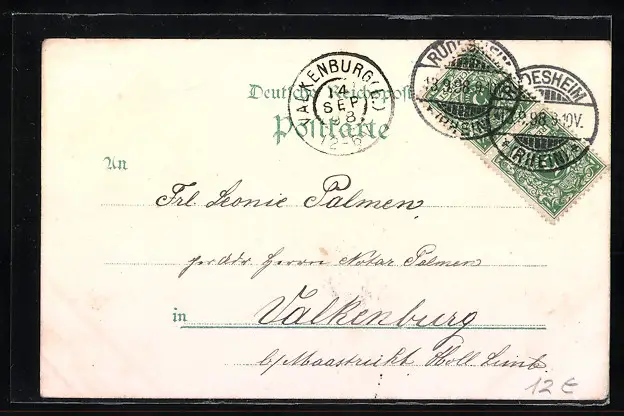 VALKENBURG (L.)
14
SEP
98
12-6
RÜDESHEIM
13.9.98.9-10V.
(RHEIN)
RÜDESHEIM
13.9.98.9-10V.
(RHEIN)
Deutsche Reichspost
Postkarte
An
Frl. Leonie Palmen
per Adr Herrn Notar Palmen
in Valkenburg
b/Maastricht Holl Limb.
12 €